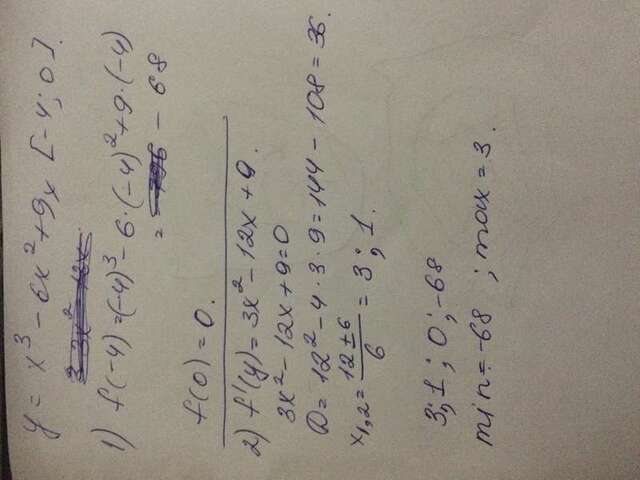 y = x³ - 6x² + 9x [-4; 0].
1) f(-4) = (-4)³ - 6·(-4)² + 9·(-4)
= - 68
f(0) = 0.
2) f'(y) = 3x² - 12x + 9.
3x² - 12x + 9 = 0
D = 12² - 4·3·9 = 144 - 108 = 36.
x₁,₂ = (12 ± 6)/6 = 3; 1.
3; 1; 0; -68
min = -68; max = 3.